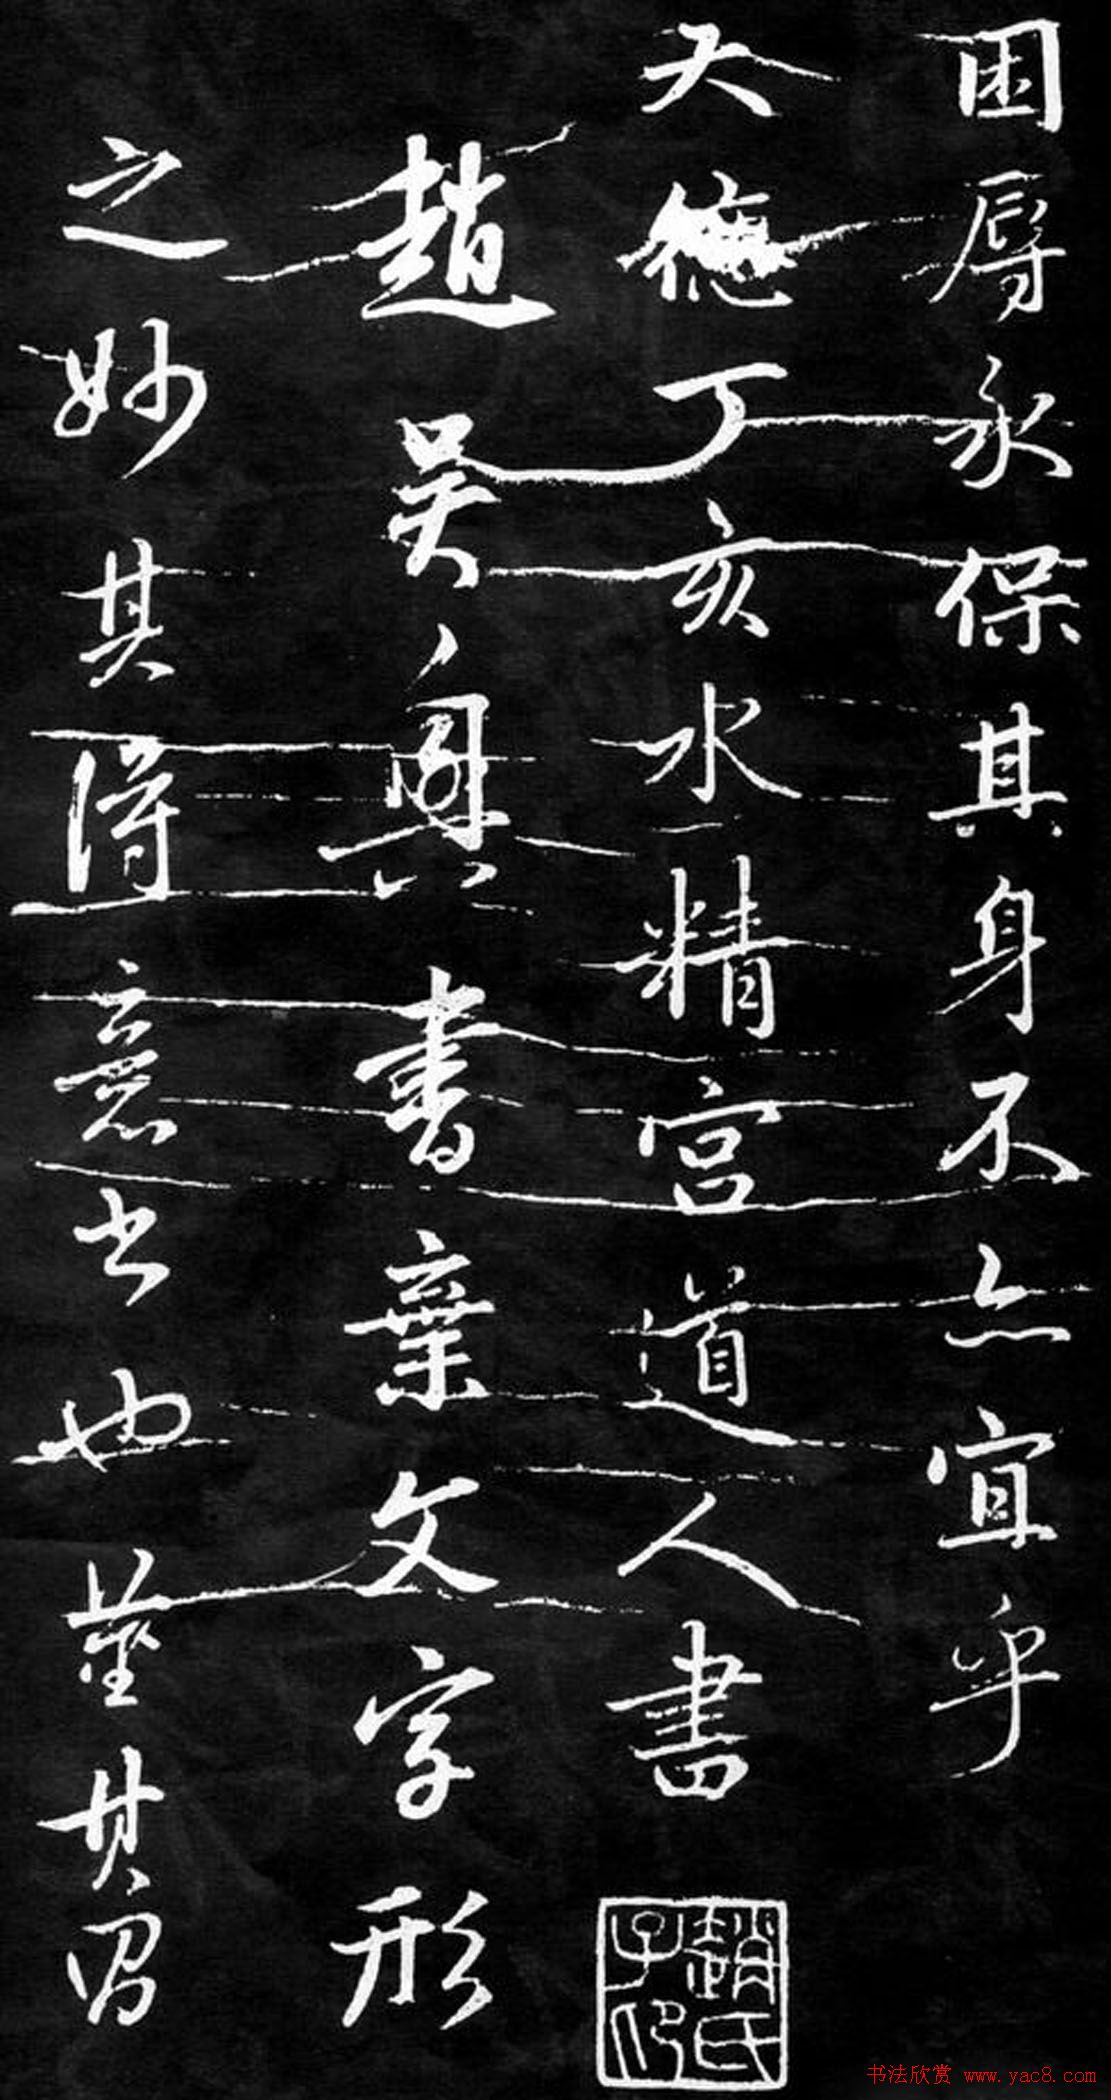 困辱永保其身不亦宜乎
大德丁亥水精宫道人書
趙氏子昂
趙吴興書棄文字形
之妙其得意书也董其昌
书法欣赏 www.yac8.com